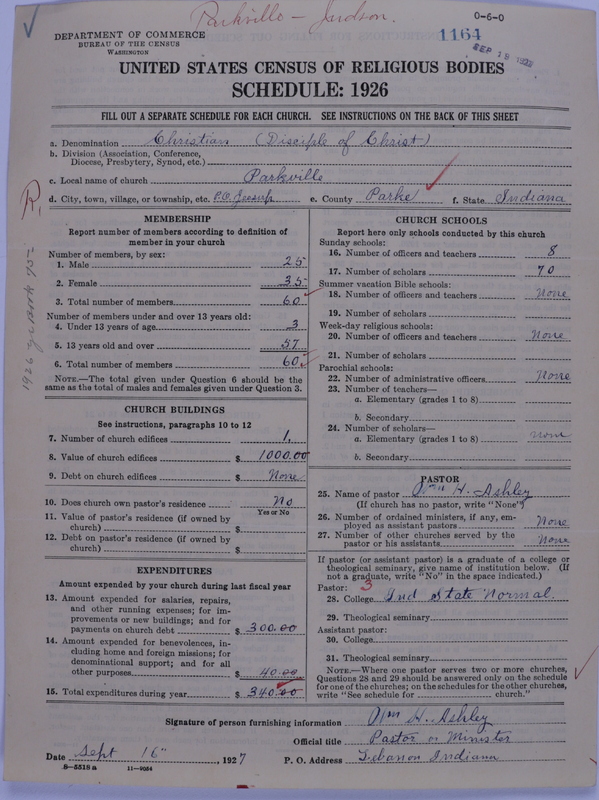 Parkville – Judson.
0-6-0
DEPARTMENT OF COMMERCE
BUREAU OF THE CENSUS
WASHINGTON
1164
SEP 19 1927
UNITED STATES CENSUS OF RELIGIOUS BODIES
SCHEDULE: 1926
FILL OUT A SEPARATE SCHEDULE FOR EACH CHURCH. SEE INSTRUCTIONS ON THE BACK OF THIS SHEET
a. Denomination Christian (Disciple of Christ)
b. Division (Association, Conference,
Diocese, Presbytery, Synod, etc.)
c. Local name of church Parkville
R.
d. City, town, village, or township, etc. P.O. Jessup e. County Parke f. State Indiana
MEMBERSHIP
Report number of members according to definition of
member in your church
Number of members, by sex:
1. Male 25
2. Female 35
3. Total number of members 60
Number of members under and over 13 years old:
4. Under 13 years of age 3
5. 13 years old and over 57
6. Total number of members 60
NOTE.—The total given under Question 6 should be the
same as the total of males and females given under Question 3.
CHURCH BUILDINGS
See instructions, paragraphs 10 to 12
7. Number of church edifices 1,
8. Value of church edifices $ 1000.00
9. Debt on church edifices $ None
10. Does church own pastor's residence No
Yes or No
11. Value of pastor's residence (if owned by
church) $
12. Debt on pastor's residence (if owned by
church) $
EXPENDITURES
Amount expended by your church during last fiscal year
13. Amount expended for salaries, repairs,
and other running expenses; for im-
provements or new buildings; and for
payments on church debt $ 300.00
14. Amount expended for benevolences, in-
cluding home and foreign missions; for
denominational support; and for all
other purposes $ 40.00
15. Total expenditures during year $ 340.00
CHURCH SCHOOLS
Report here only schools conducted by this church
Sunday schools:
16. Number of officers and teachers 8
17. Number of scholars 70
Summer vacation Bible schools:
18. Number of officers and teachers None
19. Number of scholars
Week-day religious schools:
20. Number of officers and teachers None
21. Number of scholars
Parochial schools:
22. Number of administrative officers None
23. Number of teachers—
a. Elementary (grades 1 to 8)
b. Secondary
24. Number of scholars—
a. Elementary (grades 1 to 8) none
b. Secondary
PASTOR
25. Name of pastor Wm H. Ashley
(If church has no pastor, write "None")
26. Number of ordained ministers, if any, em-
ployed as assistant pastors None
27. Number of other churches served by the
pastor or his assistants None
If pastor (or assistant pastor) is a graduate of a college or
theological seminary, give name of institution below. (If
not a graduate, write "No" in the space indicated.)
Pastor: 3
28. College Ind State Normal.
29. Theological seminary
Assistant pastor:
30. College
31. Theological seminary
NOTE.—Where one pastor serves two or more churches,
Questions 28 and 29 should be answered only on the schedule
for one of the churches; on the schedules for the other churches,
write "See schedule for church."
Signature of person furnishing information Wm H. Ashley
Official title Pastor or Minister
Date Sept 16", 1927 P. O. Address Lebanon Indiana
8-5518 a 11-9054